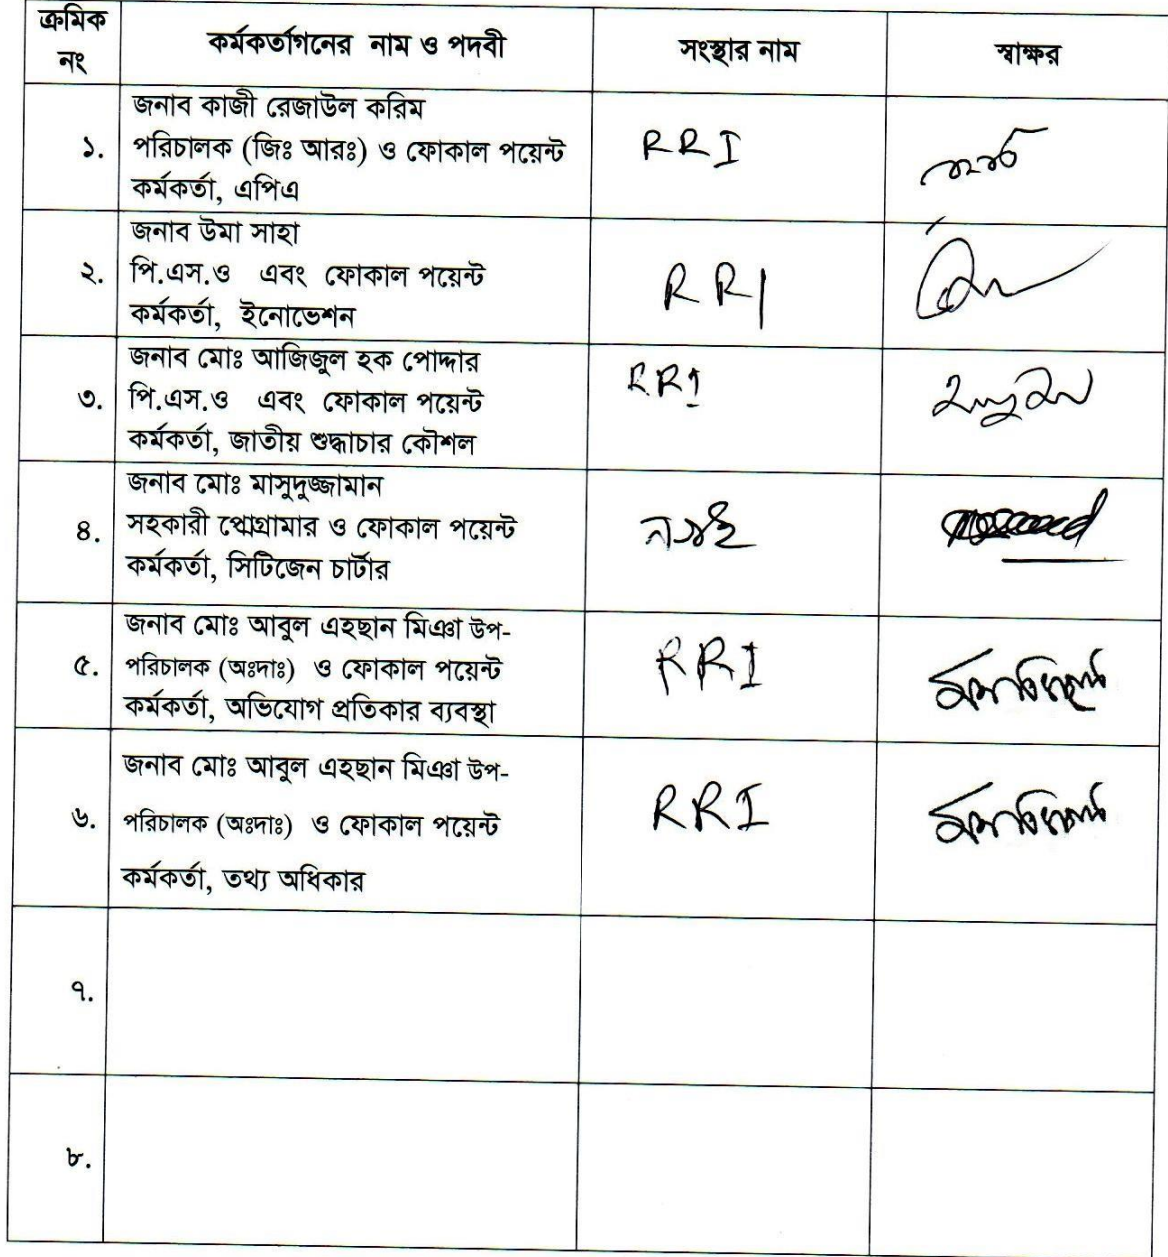 ক্রমিক
নং
কর্মকর্তাগনের নাম ও পদবী
সংস্থার নাম
স্বাক্ষর
১.
জনাব কাজী রেজাউল করিম
পরিচালক (জিঃ আরঃ) ও ফোকাল পয়েন্ট
কর্মকর্তা, এপিএ
RRI
২.
জনাব উমা সাহা
পি.এস.ও এবং ফোকাল পয়েন্ট
কর্মকর্তা, ইনোভেশন
RRI
৩.
জনাব মোঃ আজিজুল হক পোদ্দার
পি.এস.ও এবং ফোকাল পয়েন্ট
কর্মকর্তা, জাতীয় শুদ্ধাচার কৌশল
RRI
৪.
জনাব মোঃ মাসুদুজ্জামান
সহকারী প্রোগ্রামার ও ফোকাল পয়েন্ট
কর্মকর্তা, সিটিজেন চার্টার
নগই
৫.
জনাব মোঃ আবুল এহছান মিঞা উপ-
পরিচালক (অঃদাঃ) ও ফোকাল পয়েন্ট
কর্মকর্তা, অভিযোগ প্রতিকার ব্যবস্থা
RRI
৬.
জনাব মোঃ আবুল এহছান মিঞা উপ-
পরিচালক (অঃদাঃ) ও ফোকাল পয়েন্ট
কর্মকর্তা, তথ্য অধিকার
RRI
৭.
৮.